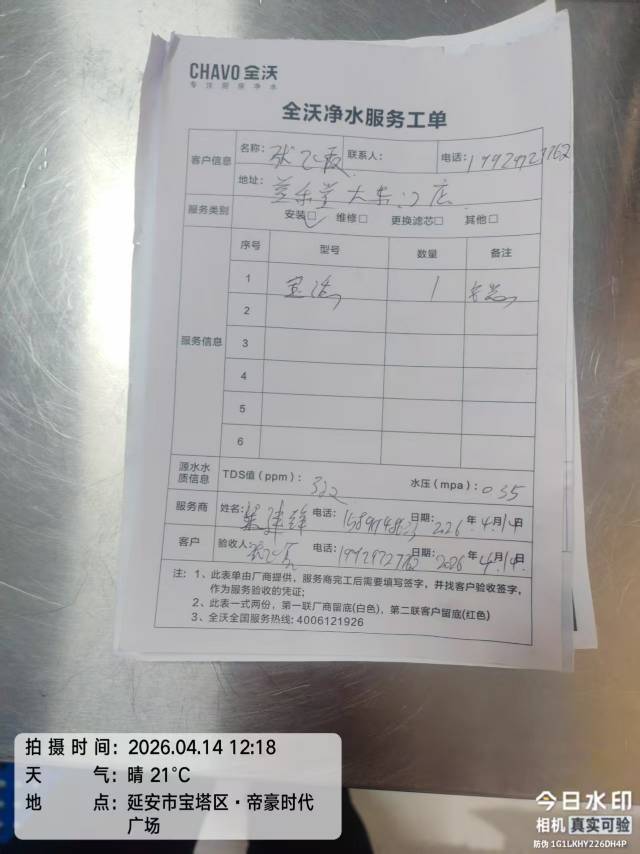 CHAVO 全沃
专注厨房净水
全沃净水服务工单
客户信息 名称: 张 霞 联系人: 电话: 19929727762
地址: 大东门店
服务类别 安装□ 维修□ 更换滤芯□ 其他□
服务信息 序号 型号 数量 备注
1 宝洁 1
2
3
4
5
6
源水水质信息 TDS值(ppm): 322 水压(mpa): 0.35
服务商 姓名: 电话: 日期: 2026年4月14日
客户 验收人: 电话: 日期: 2026年4月14日
注: 1、此表单由厂商提供，服务商完工后需要填写签字，并找客户验收签字，
作为服务验收的凭证;
2、此表一式两份，第一联厂商留底(白色)，第二联客户留底(红色)
3、全沃全国服务热线: 4006121926
拍摄时间: 2026.04.14 12:18
天气: 晴 21°C
地点: 延安市宝塔区·帝豪时代
广场
今日水印
相机 真实可验
防伪 1G1LKHY226DH4P